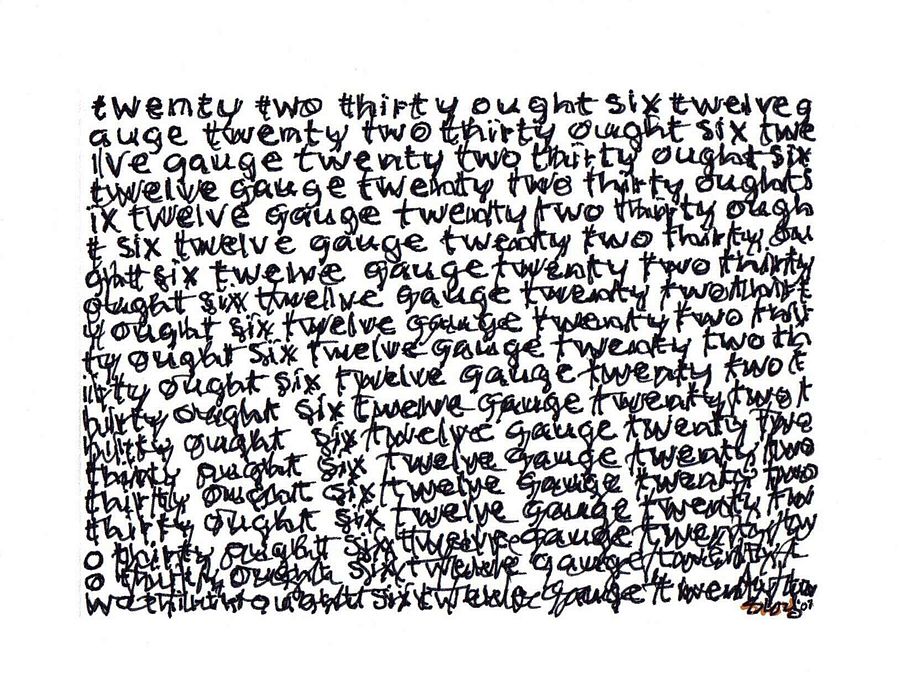 twenty two thirty ought six twelve g
auge twenty two thirty ought six twe
lve gauge twenty two thirty ought six
twelve gauge twenty two thirty ought s
ix twelve gauge twenty two thirty ough
t six twelve gauge twenty two thirty ou
ght six twelve gauge twenty two thirty
ought six twelve gauge twenty two thirt
y ought six twelve gauge twenty two thir
ty ought six twelve gauge twenty two th
irty ought six twelve gauge twenty two t
hirty ought six twelve gauge twenty two t
hirty ought six twelve gauge twenty two
thirty ought six twelve gauge twenty two
thirty ought six twelve gauge twenty two
thirty ought six twelve gauge twenty tw
o thirty ought six twelve gauge twenty tw
o thirty ought six twelve gauge twenty t
wo thirty ought six twelve gauge twenty two
'07